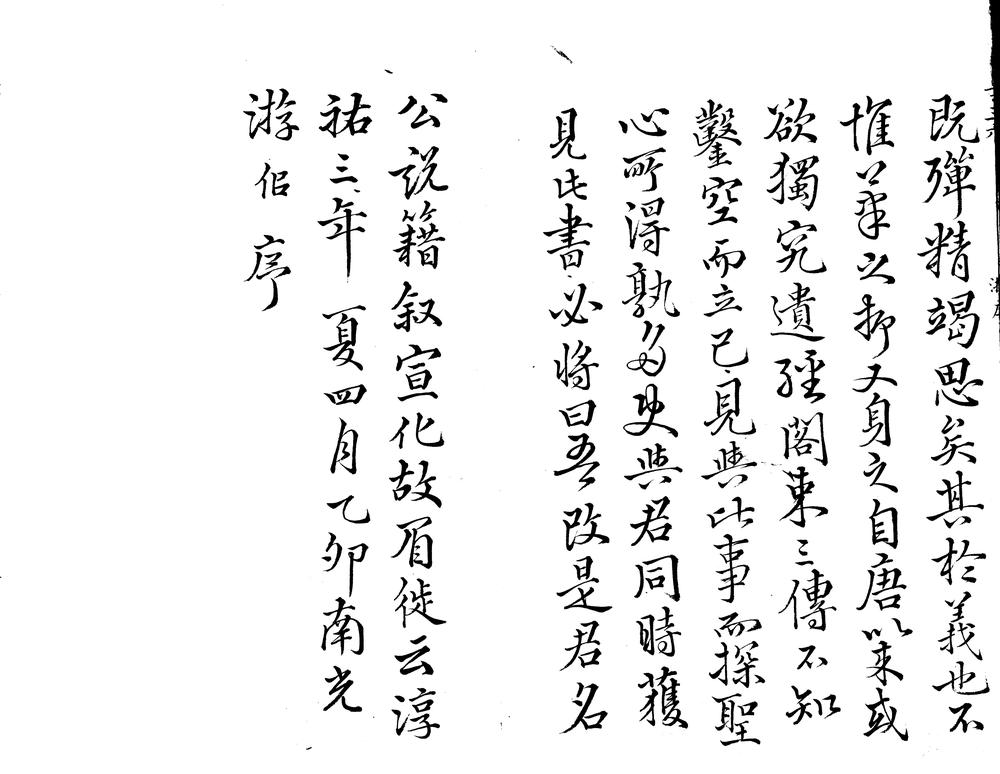 既殫精竭思矣其於義也不
惟筆之抑又身之自唐以來或
欲獨究遺經閣束三傳不知
鑿空而立己見與比事而探聖
心所得孰多使與君同時獲
見此書必將曰吾改是君名
公說籍叙宣化故眉徙云淳
祐三年夏四月乙卯南充
游佀序